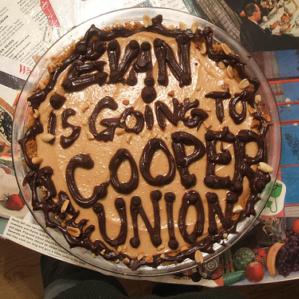 EVAN
is GOING TO
COOPER
UNION